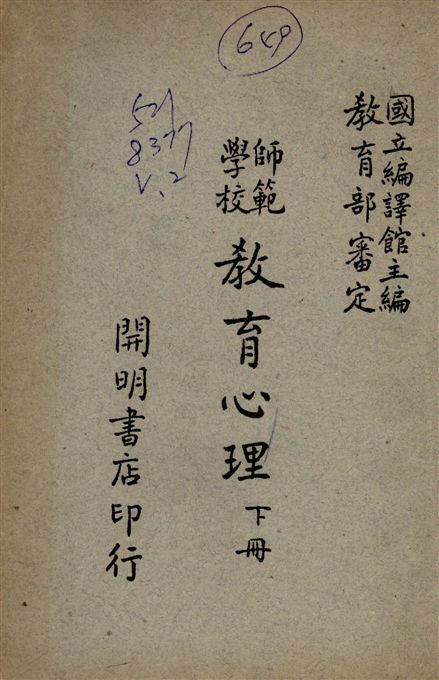 國立編譯館主編
教育部審定
師範
學校
教育心理 下冊
開明書店印行
649
521
8377
V.2